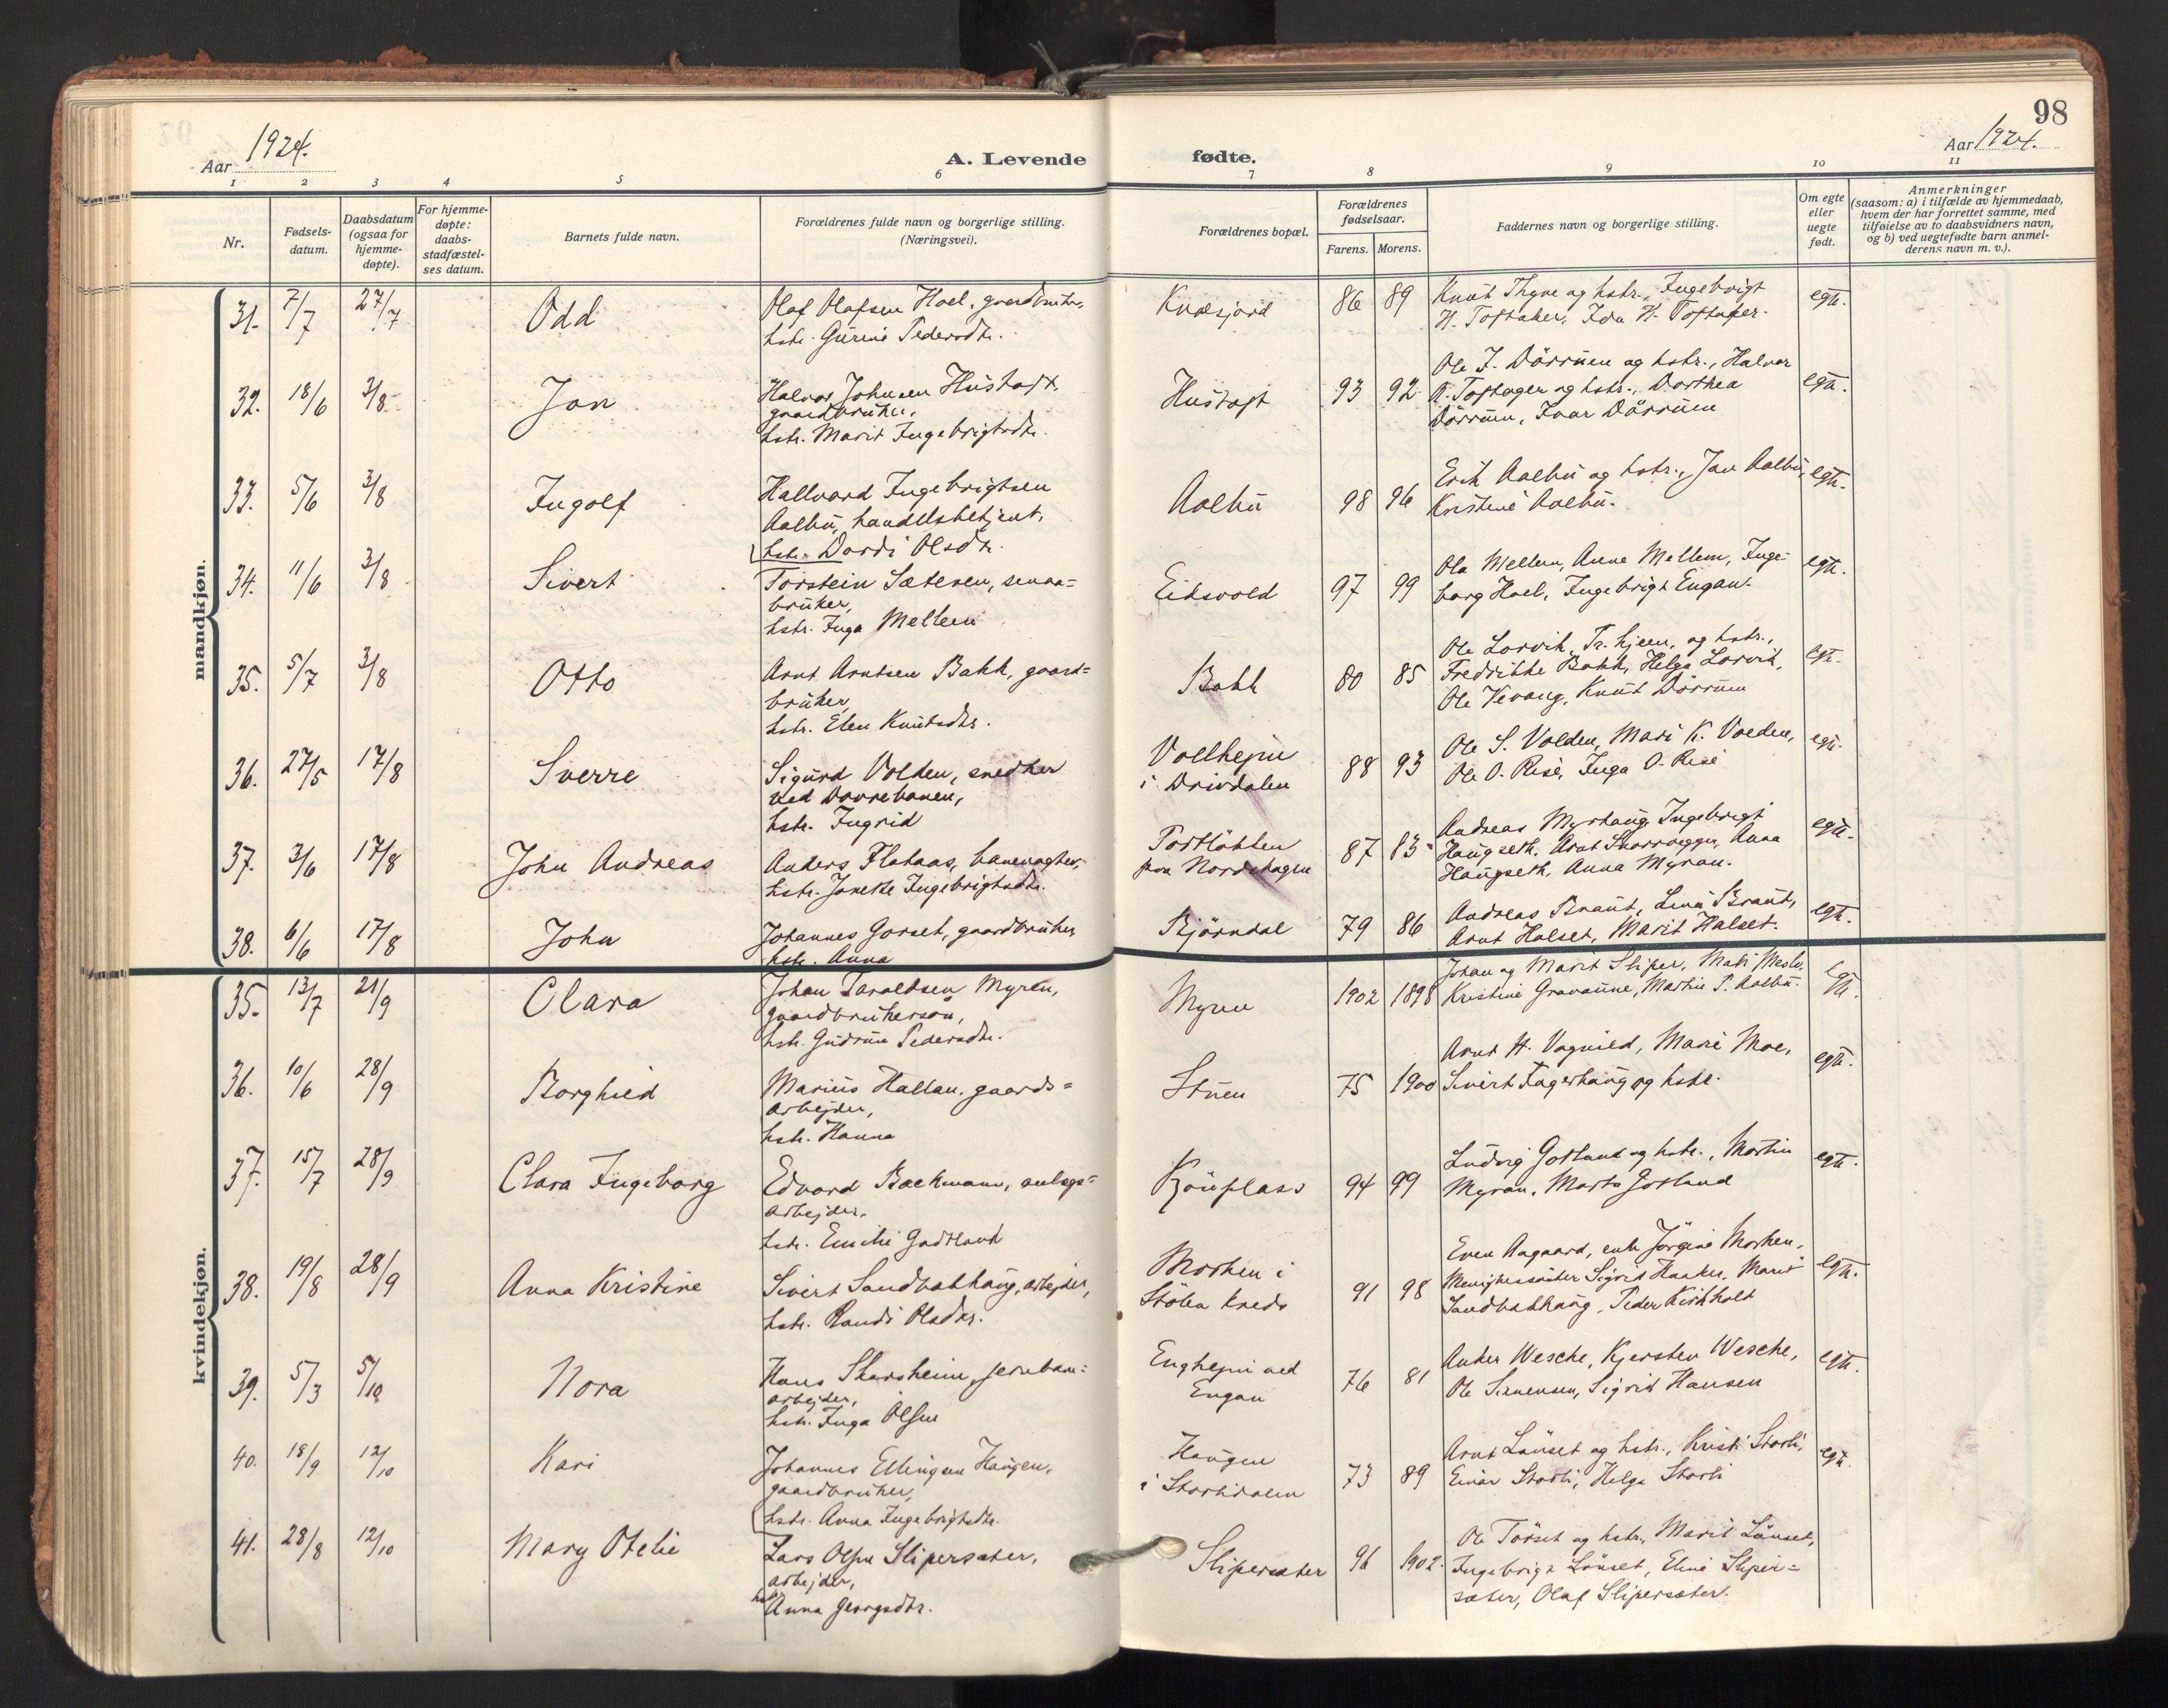 98
Aar 1924.
A. Levende
fødte.
Aar 1924.
1 2 3 4 5 6 7 8 9 10 11
Nr.
Fødsels-
datum.
Daabsdatum
(ogsaa for
hjemme-
døpte).
For hjemme-
døpte:
daabs-
stadfæstel-
ses datum.
Barnets fulde navn.
Forældrenes fulde navn og borgerlige stilling.
(Næringsvei).
Forældrenes bopæl.
Forældrenes
fødselsaar.
Farens. Morens.
Faddernes navn og borgerlige stilling.
Om egte
eller
uegte
født.
Anmerkninger
(saasom: a) i tilfælde av hjemmedaab,
hvem der har forrettet samme, med
tilføielse av to daabsvidners navn,
og b) ved uegtefødte barn anmel-
derens navn m. v.).
mandkjøn.
31. 7/7 27/7 Odd
Olaf Olafsen Hoel, gaardbruker,
hstr. Gurine Pedersdtr.
86 89
Knut Thyve og hstr., Ingebrigt
H. Toftaker, Ida H. Toftaker.
egte.
32. 18/6 3/8 Jon
Halvor Johnsen Hustoft,
gaardbruker,
hstr. Marit Ingebrigtsdtr.
Hustoft 93 92
Ole J. Dörrum og hstr., Halvor
O. Toftager og hstr., Dorthea
Dörrum, Ivar Dörrum
egte.
33. 5/6 3/8 Ingolf
Hallvard Ingebrigtsen
Aalbu, handelsbetjent,
hstr. Dordi Olsdtr.
Aalbu 98 96
Erik Aalbu og hstr., Jon Aalbu,
Kristine Aalbu.
egte.
34. 11/6 3/8 Sivert
Torstein Sæteren, smaa=
bruker,
hstr. Inga Mellem
Eidsvold 97 99
Ola Mellem, Anne Mellem, Inge-
borg Hoel, Ingebrigt Engan.
egte.
35. 5/7 3/8 Otto
Arnt Arntsen Bakk, gaard=
bruker,
hstr. Elen Knutsdtr.
Bakk 80 85
Ole Lorvik, Tr.hjem, og hstr.,
Fredrikke Bakk, Helga Lorvik,
Ole Vevang, Knut Dörrum
egte.
36. 27/5 17/8 Sverre
Sigurd Volden, snedker
ved Dovrebanen,
hstr. Ingrid
Vollheim
i Drivdalen 88 93
Ole S. Volden, Mari K. Volden,
Ole O. Rise, Inga O. Rise
egte.
37. 3/6 17/8 John Andreas
Anders Flataas, banevogter,
hstr. Jonette Ingebrigtsdtr.
paa Nordskogen 87 83
Andreas Myrhaug, Ingebrigt
Haugseth, Arnt Anna
Haugseth, Anna Myran.
egte.
38. 6/6 17/8 John
Johannes Gorset, gaardbruker
hstr. Anna
Björndal 79 86
Andreas Braut, Lina Braut,
Arnt Halset, Marit Halset.
egte.
kvindekjøn.
35. 13/7 21/9 Clara
Johan Taraldsen Myren,
gaardbrukersön,
hstr. Gudrun Pedersdtr.
Myren 1902 1898
Johan og Marit Sliper, Mali
Kristine Gravaune, Martin P. Aalbu.
egte.
36. 10/6 28/9 Borghild
Marius Hallan, gaards=
arbejder,
hstr. Hanna
Stuen 75 1900
Arnt H. Vognild, Mari Moe,
Sivert Fagerhaug og hstr.
egte.
37. 15/7 28/9 Clara Ingeborg
Edvard Backmann, anlegs=
arbejder,
hstr. Emilie Gotland
94 99
Ludvig Gotland og hstr., Martin
Myran, Marta Gotland
egte.
38. 19/8 28/9 Anna Kristine
Sivert Sandbakhaug, arbejder,
hstr. Randi Olsdtr.
Morken i
Stölen kreds 91 98
Even Aagaard, enke Jörgine Morken,
Menighetssöster Sigrid Haaker, Marit
Sandbakhaug, Peder Kirkholt
egte.
39. 5/3 5/10 Nora
Hans Skarsheim, jernban=
arbejder,
hstr. Inga Olsen
Engheim ved
Engan 76 81
Anker Wesche, Kjersten Wesche,
Ole Simensen, Sigrid Hansen
egte.
40. 18/9 12/10 Kari
Johannes Ellingsen Haugen,
gaardbruker,
hstr. Anna Ingebrigtsdtr.
Haugen
i Storlidalen 73 89
Arnt Lönset og hstr., Kristi Storli,
Einar Storli, Helga Storli
egte.
41. 28/8 12/10 Mary Otelie
Lars Olsen Slipersæter,
arbejder,
hstr. Anna Georgsdtr.
Slipersæter 96 1902.
Ole Törset og hstr., Marit Lönset,
Ingebrigt Lönset, Eline Sliper=
sæter, Olaf Slipersæter.